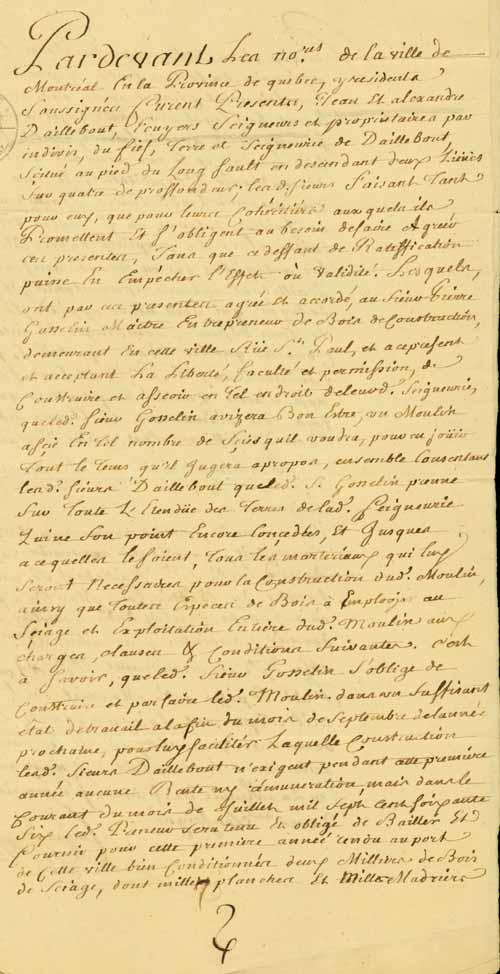 Pardevant Les no.res de la ville de
Montréal En la Province de quebec, y residents
Soussignés furent Presents, Jean Et alexandre
Daillebout, Ecuyers Seigneurs et propriétaires par
indivis, du fief, Terre et Seigneurie de Daillebout,
Scitué au pied du Long Sault en descendant deux Lieües
Sur quatre de proffondeur, les d. sieurs faisant Tant
pour eux, que pour leurs Cohéritiers auxquels ils
Promettent Et s'obligent au besoin defaire Agréer
ces presentes, Sans que ce deffaut de Rateffication
puisse En Empécher l'Effet où validité. Lesquels,
ont par ces presentes agréé et accordé, au Sieur Pierre
Gosselin Maitre Entrepreneur de Bois de Construction,
demeurant En cette ville Rüe St. Paul, et ace present
et acceptant La Liberté, faculté et permission, de
Construire et asseoir en Tel endroit deleurd. Seigneurie,
queled. Sieur Gosselin avizera Bon Estre, un Moulin
assie En Tel nombre de Scies quil voudra, pour en joüir
Tout le Tems qu'il Jugera apropos, ensemble Consentans
lesd. Sieurs Daillebout queled. S. Gosselin prenne
Sur Toute L'Etendüe des Terres de lad. Seigneurie
Qui ne Son point Encore Concedées, Et Jusques
a cequelles le soient, Tous les matereiaux qui luy
Seront Necessaires pour la Construction dud. Moulin,
ainsy que Toutes Especes de Bois à Employer au
Sciage et Exploitation Entiere dud. Moulin aux
charges, clauses & Conditions Suivantes. c'est
à Savoir, queled. Sieur Gosselin S'oblige de
Construire et parfaire led. Moulin dans un Suffisant
état detravail alafin du mois de Septembre delannée
prochaine, pour luy faciliter Laquelle Construction
lesd. Sieurs Daillebout n'exigent pendant cette premiere
année aucune Rente ny rémuneration, mais dans le
Courant du mois de Juillet mil Sept Cent soixante
Six led. Preneur sera tenu Et obligé de Bailler Et
fournir pour cette premiere année rendu au port
de Cette ville bien Conditionnés deux Milliers de Bois
de Sciage, dont mille planches Et Mille Madriers